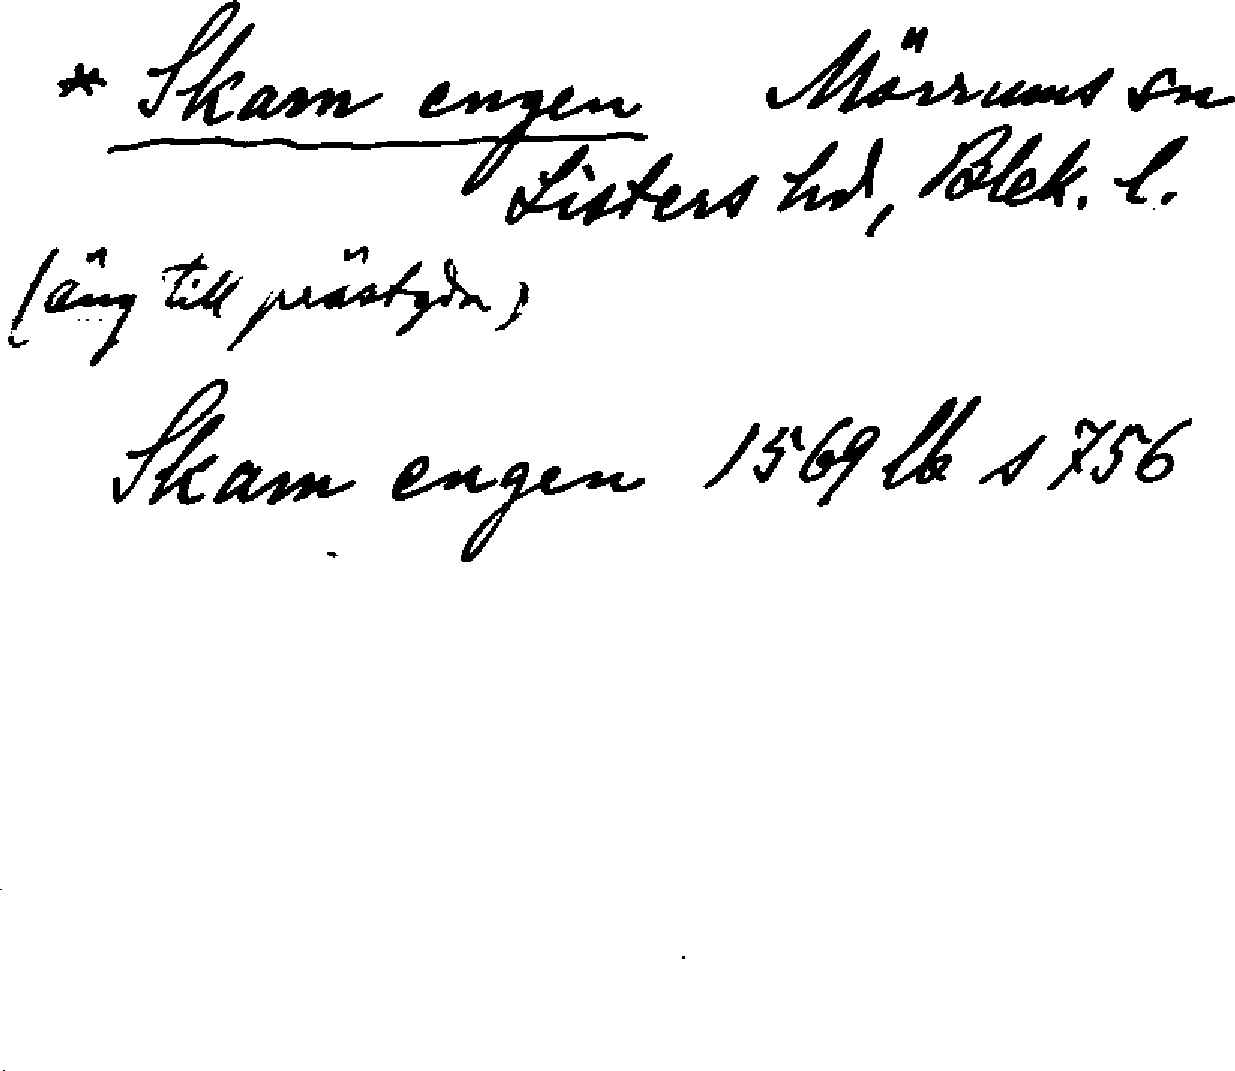 * Skam engen Mörrums sn
Listers hd, Blek. l.
(äng till prästgdn)
Skam engen 1569 lb s 756